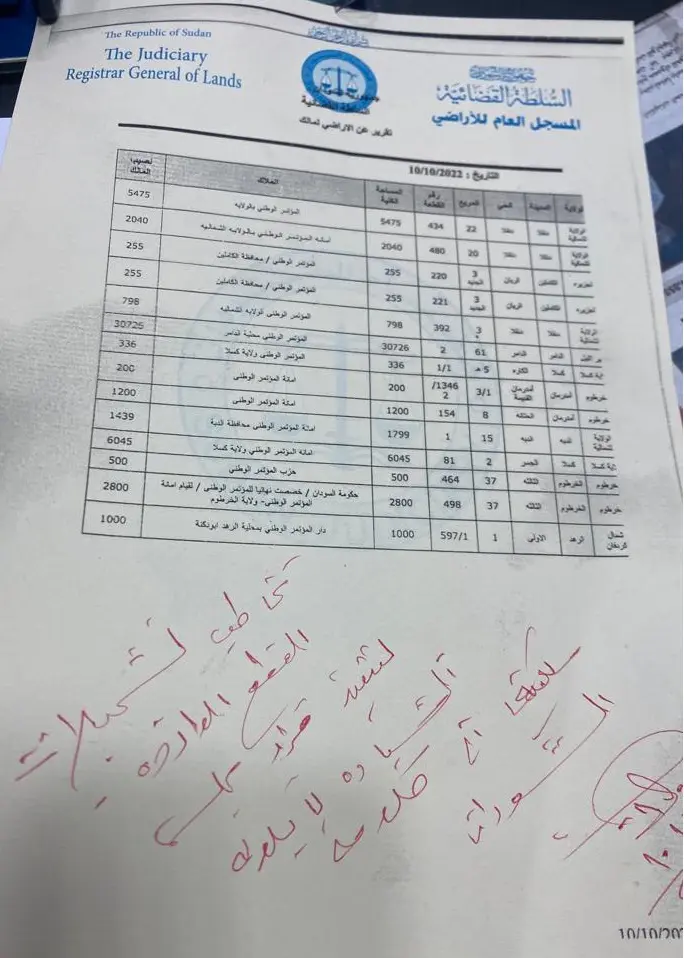 The Republic of Sudan
The Judiciary
Registrar General of Lands
السلطة القضائية
المسجل العام للأراضي
جمهورية السودان
السلطة القضائية
تقرير عن الاراضي لمالك
التاريخ : 10/10/2022
الولاية المدينة الحي المربع رقم القطعة المساحة الكلية الملاك نصيب المالك
الولاية الشمالية دنقلا دنقلا 22 434 5475 المؤتمر الوطني بالولايه 5475
الولاية الشمالية دنقلا دنقلا 20 480 2040 امانه المؤتمر الوطني بالولايه الشماليه 2040
الجزيره الكاملين الريان 3 الجديد 220 255 المؤتمر الوطني / محافظة الكاملين 255
الجزيره الكاملين الريان 3 الجديد 221 255 المؤتمر الوطني / محافظة الكاملين 255
الولاية الشمالية دنقلا دنقلا 3 392 798 المؤتمر الوطني الولايه الشماليه 798
نهر النيل الدامر الدامر 61 2 30726 المؤتمر الوطني محلية الدامر 30725
ولاية كسلا كسلا الكاره 5 هـ 1/1 336 المؤتمر الوطني ولاية كسلا 336
خرطوم أمدرمان أمدرمان القديمة 3/1 1346/2 200 امانة المؤتمر الوطنى 200
خرطوم أمدرمان 8 154 1200 امانة المؤتمر الوطنى 1200
الولاية الشمالية الدبه الدبه 15 1 1799 امانة المؤتمر الوطني محافظة الدبة 1439
ولاية كسلا كسلا الجسر 2 81 6045 امانه المؤتمر الوطني ولاية كسلا 6045
خرطوم الخرطوم الثالثه 37 464 500 حزب المؤتمر الوطني 500
خرطوم الخرطوم الثالثه 37 498 2800 حكومة السودان / خصصت نهائيا للمؤتمر الوطني / لقيام امانة المؤتمر الوطني- ولاية الخرطوم 2800
شمال كردفان الرهد الاولي 1 597/1 1000 دار المؤتمر الوطني بمحلية الرهد ابودكنة 1000
تخاطب تسجيلات
القطع الواردة
لتنفيذ قرار مجلس
السيادة
10/10/20